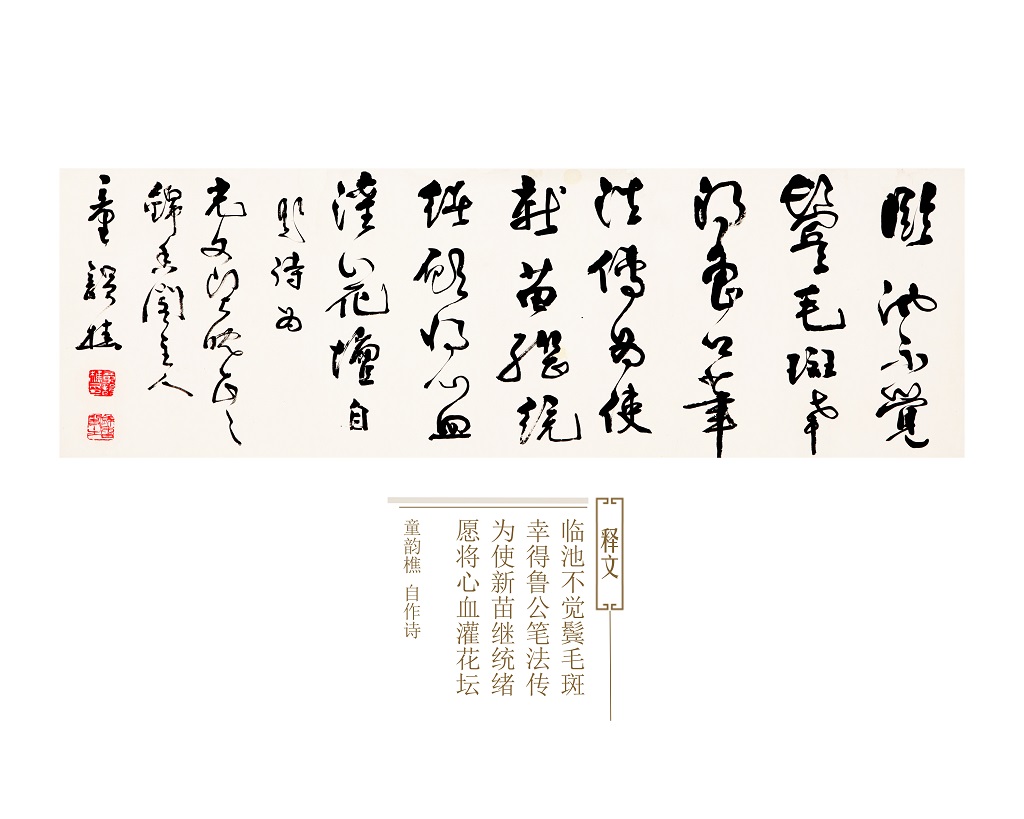 臨池不覺
鬢毛斑幸
得魯公筆
法傳為使
新苗繼統
緒願將心血
灌花壇自
題詩為
主人
童韻樵
释文
临池不觉鬓毛斑
幸得鲁公笔法传
为使新苗继统绪
愿将心血灌花坛
童韵樵 自作诗